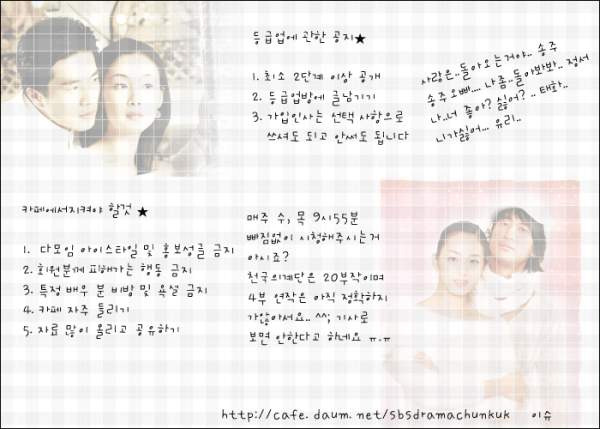 등급업에 관한 공지★
1. 최소 2단계 이상 공개
2. 등급업방에 글남기기
3. 가입인사는 선택 사항으로
쓰셔도 되고 안써도 됩니다
사랑은..돌아오는거야.. 송주
송주오빠.... 나좀..돌아봐봐.. 정서
나..너 좋아? 싫어? .. 태화..
니가싫어... 유리..
카페에서지켜야 할것 ★
1. 다모임 아이스타일 및 홍보성글 금지
2. 회원분께 피해가는 행동 금지
3. 특정 배우 분 비방 및 욕설 금지
4. 카페 자주 들리기
5. 자료 많이 올리고 공유하기
매주 수, 목 9시55분
빠짐없이 시청해주시는거
아시죠?
천국의계단은 20부작이며
4부 연작은 아직 정확하지
가않아서요.. ^^; 기사로
보면 안한다고 하네요 ㅠ.ㅠ
http://cafe.daum.net/sbsdramachunkuk 이슈